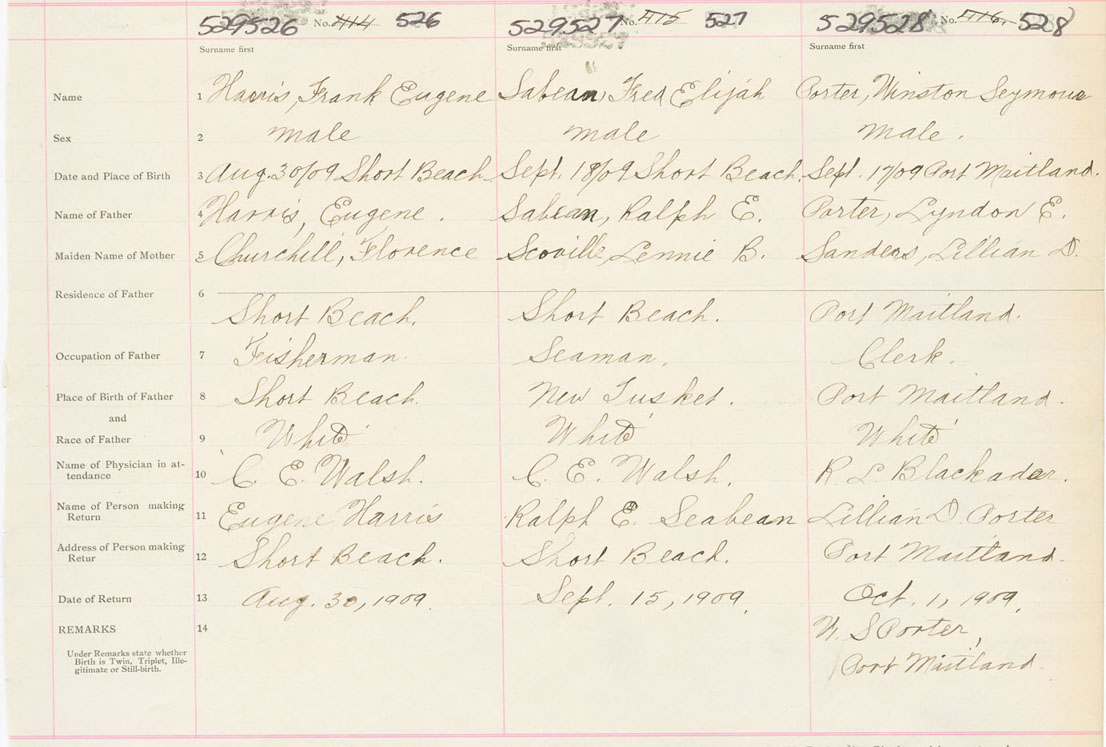 529526 No. 414 526 529527 No. 415 527 529528 No. 416 528
Surname first Surname first Surname first
Name 1 Harris, Frank Eugene Sabean, Fred Elijah Porter, Winston Seymour
Sex 2 male male male.
Date and Place of Birth 3 Aug. 30/09 Short Beach Sept. 18/09 Short Beach. Sept. 17/09 Port Maitland.
Name of Father 4 Harris, Eugene. Sabean, Ralph E. Porter, Lyndon E.
Maiden Name of Mother 5 Churchill, Florence Scoville, Lennie B. Sanders, Lillian D.
Residence of Father 6
Short Beach. Short Beach. Port Maitland.
Occupation of Father 7 Fisherman. Seaman. Clerk.
Place of Birth of Father 8 Short Beach New Tusket. Port Maitland.
and
Race of Father 9 White White White
Name of Physician in at-
tendance 10 C. E. Walsh. C. E. Walsh. R. L. Blackadar.
Name of Person making
Return 11 Eugene Harris Ralph E. Seabean Lillian D Porter
Address of Person making
Retur 12 Short Beach. Short Beach. Port Maitland.
Date of Return 13 Aug. 30, 1909. Sept. 15, 1909. Oct. 1, 1909.
REMARKS 14 W. S Porter,
Under Remarks state whether
Birth is Twin, Triplet, Ille-
gitimate or Still-birth.
Port Maitland.